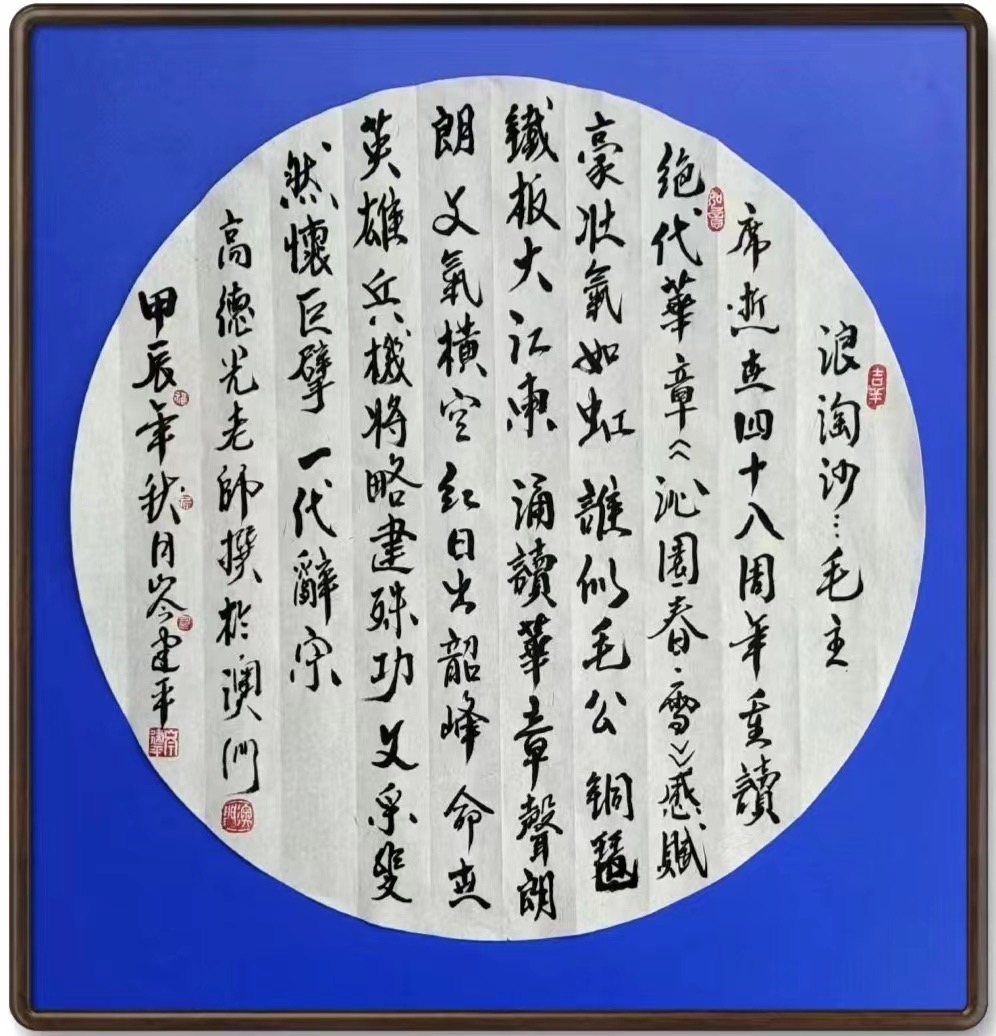 吉羊
浪淘沙…毛主
席逝世四十八周年重讀
如意
绝代華章《沁園春·雪》感賦
豪壯氣如虹 誰似毛公 銅琶
鐵板大江東 誦讀華章聲朗
朗 文氣橫空 紅日出韶峰 命世
英雄 兵機將略建殊功 文采斐
然懷巨擘 一代辭宗
高德光老師撰於澳门
甲辰年秋月岑建平